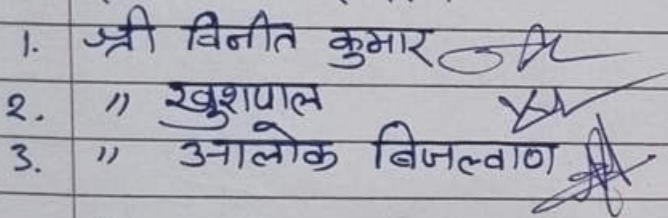 1. श्री विनीत कुमार
2. " खुशपाल
3. " आलोक बिजल्वाण